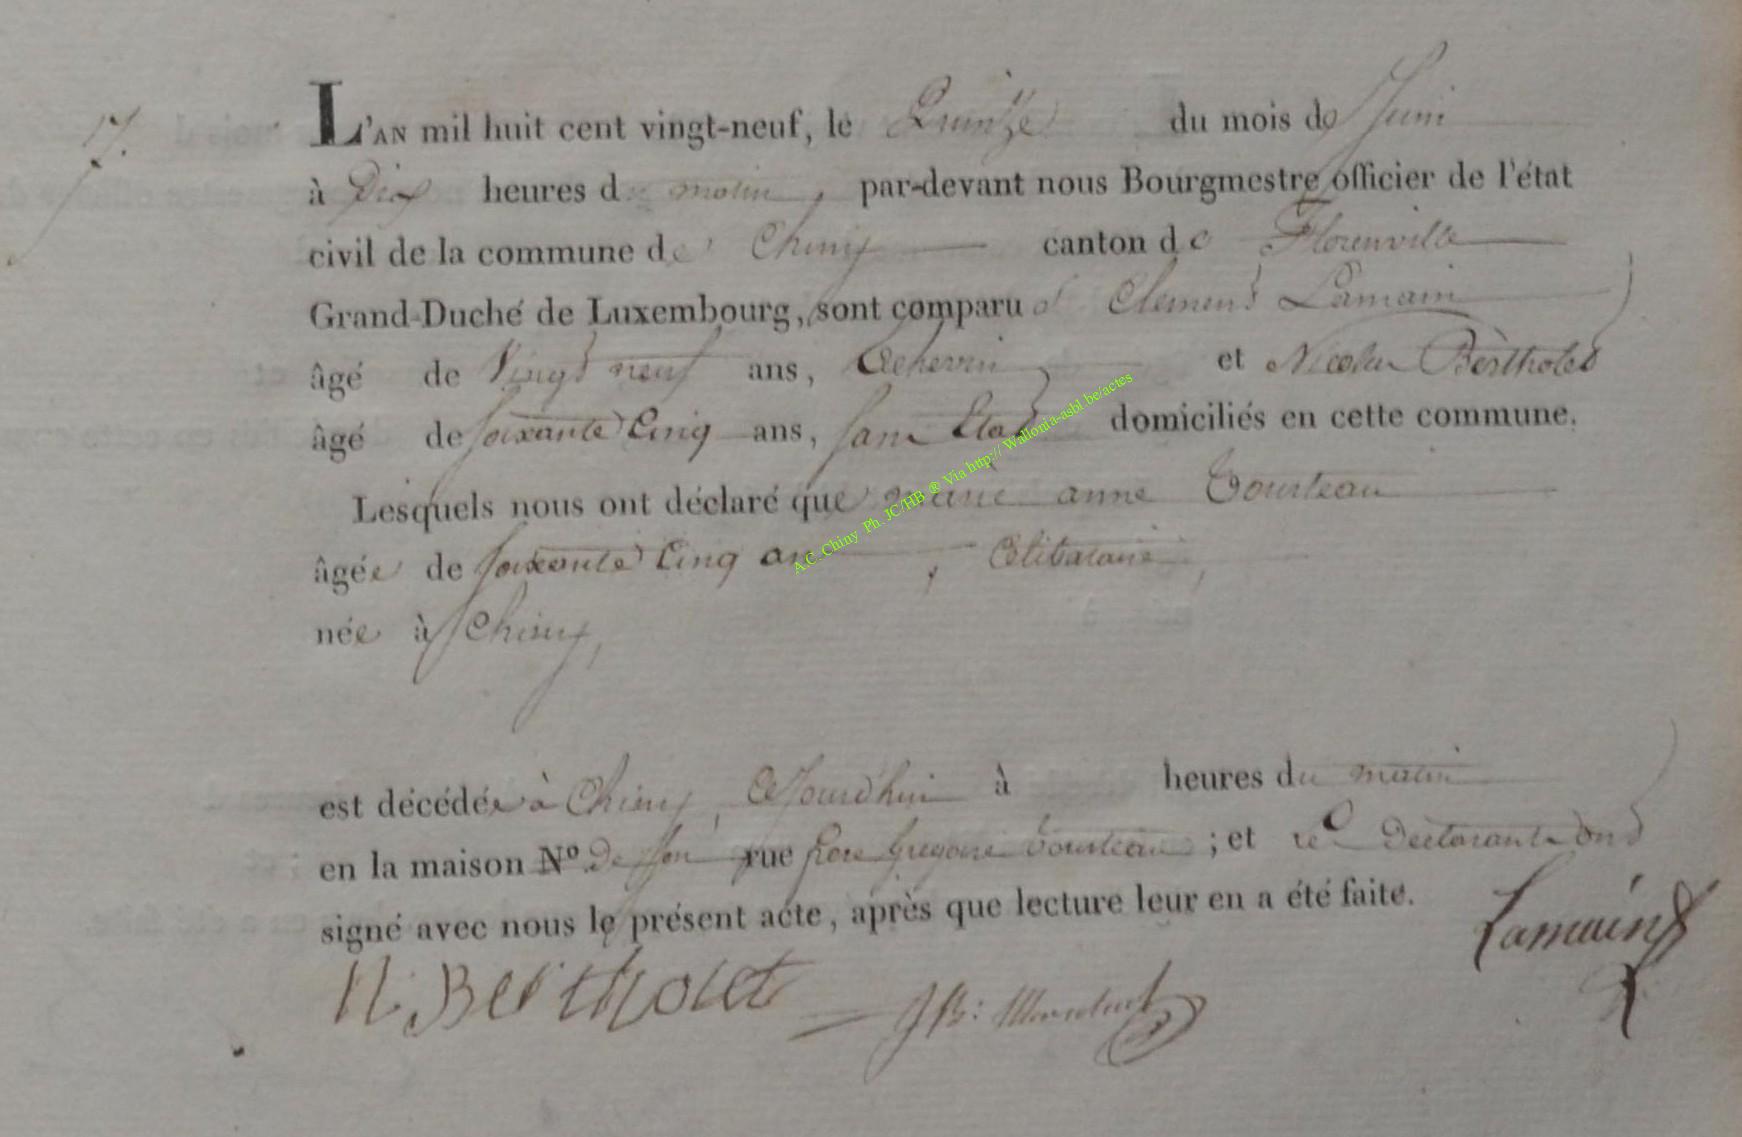 17.
L'AN mil huit cent vingt-neuf, le Quinze du mois de Juin
à Dix heures du matin, par-devant nous Bourgmestre officier de l'état
civil de la commune de Chiny canton de Florenville
Grand-Duché de Luxembourg, sont comparu Clement Lamain
âgé de Vingt neuf ans, Echevin et Nicolas Bertholet
âgé de soixante Cinq ans, sans Etat domiciliés en cette commune.
Lesquels nous ont déclaré que marie anne Tourteau
âgée de soixante Cinq ans, Celibataire,
née à Chiny,
est décédée à Chiny, Cejourd'hui à heures du matin
en la maison N.º de son rue frere Gregoire Tourteau ; et les Declarants ont
signé avec nous le présent acte, après que lecture leur en a été faite.
N. Bertholet JB: Lamain
A.C. Chiny Ph. JC/HB ® Via http:// Wallonia-asbl.be/actes